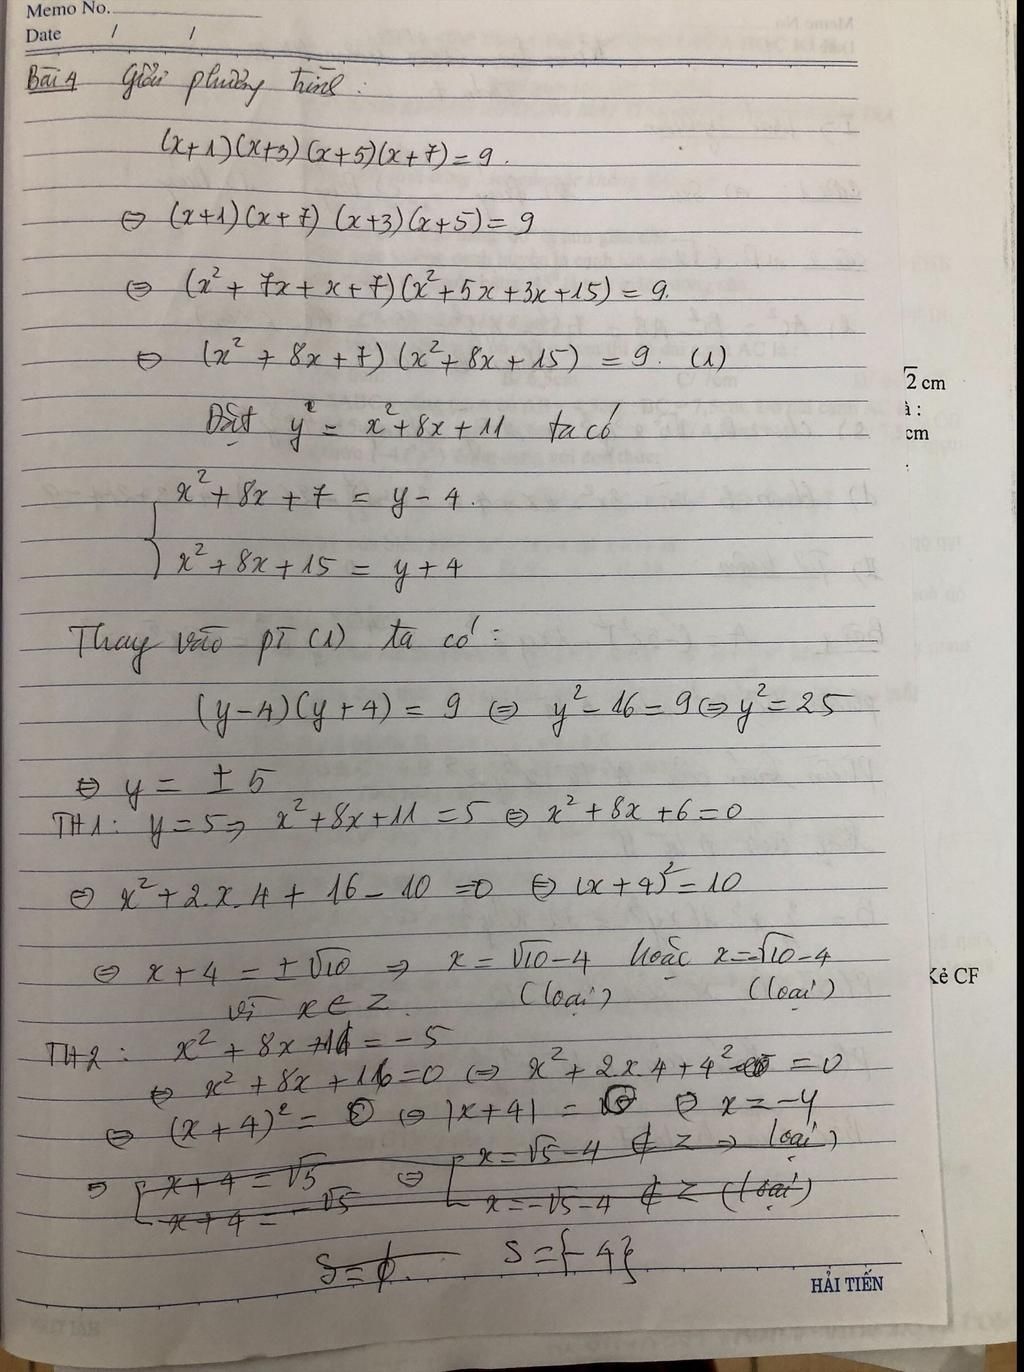 Memo No.
Date / /
Bài 4 Giải phương trình :
(x+1)(x+3)(x+5)(x+7) = 9.
⇔ (x+1)(x+7) (x+3)(x+5) = 9
⇔ (x² + 7x + x + 7)(x² + 5x + 3x + 15) = 9.
⇔ (x² + 8x + 7) (x² + 8x + 15) = 9. (1)
Đặt y² = x² + 8x + 11 ta có
x² + 8x + 7 = y - 4.
x² + 8x + 15 = y + 4
Thay vào pt (1) ta có :
(y - 4)(y + 4) = 9 ⇔ y² - 16 = 9 ⇔ y² = 25
⇔ y = ± 5
TH1: y = 5 ⇒ x² + 8x + 11 = 5 ⇔ x² + 8x + 6 = 0
⇔ x² + 2.x.4 + 16 - 10 = 0 ⇔ (x + 4)² = 10
⇔ x + 4 = ± √10 ⇒ x = √10 - 4 hoặc x = -√10 - 4
vì x ∈ Z (loại) (loại)
TH2 : x² + 8x + 11 = - 5
⇔ x² + 8x + 16 = 0 ⇔ x² + 2x.4 + 4² = 0
⇔ (x + 4)² = 0 ⇔ |x + 4| = 0 ⇔ x = -4
⇒ x + 4 = √5 ⇔ x = √5 - 4 ∉ Z ⇒ loại)
x + 4 = - √5 x = -√5 - 4 ∉ Z (loại)
S = ϕ. S = {- 4}
HẢI TIẾN
√2 cm
à :
cm
Kẻ CF